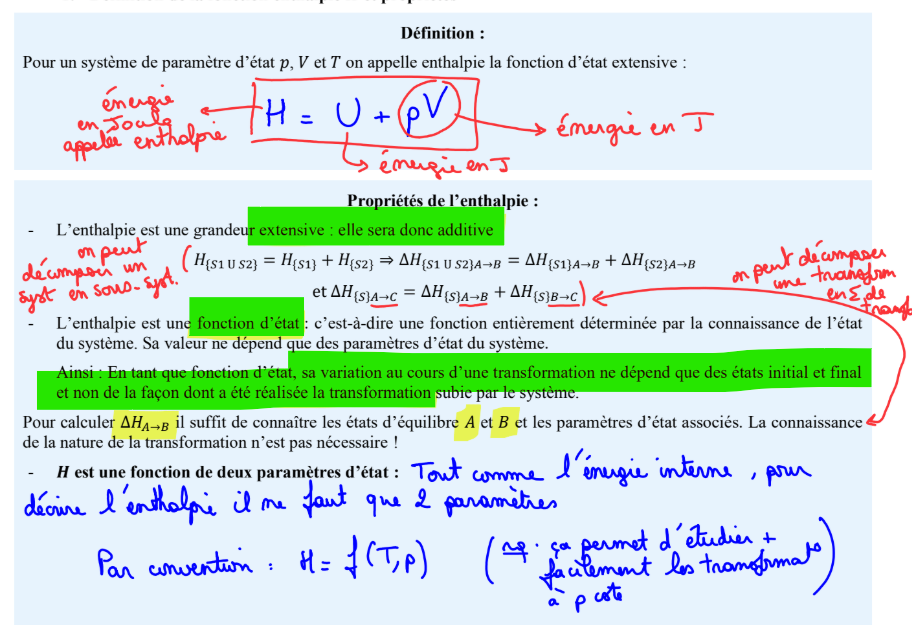 Définition :
Pour un système de paramètre d'état p, V et T on appelle enthalpie la fonction d'état extensive :
énergie
en Joule
appelée enthalpie
H = U + pV
énergie en J
énergie en J
Propriétés de l'enthalpie :
- L'enthalpie est une grandeur extensive : elle sera donc additive
on peut
décomposer un
syst en sous-syst.
(H{S1 ∪ S2} = H{S1} + H{S2} ⇒ ΔH{S1 ∪ S2}A→B = ΔH{S1}A→B + ΔH{S2}A→B
et ΔH{S}A→C = ΔH{S}A→B + ΔH{S}B→C)
on peut décomposer
une transform
en Σ de
transf
- L'enthalpie est une fonction d'état : c'est-à-dire une fonction entièrement déterminée par la connaissance de l'état
du système. Sa valeur ne dépend que des paramètres d'état du système.
Ainsi : En tant que fonction d'état, sa variation au cours d'une transformation ne dépend que des états initial et final
et non de la façon dont a été réalisée la transformation subie par le système.
Pour calculer ΔHA→B il suffit de connaître les états d'équilibre A et B et les paramètres d'état associés. La connaissance
de la nature de la transformation n'est pas nécessaire !
- H est une fonction de deux paramètres d'état : Tout comme l'énergie interne, pour
décrire l'enthalpie il ne faut que 2 paramètres
Par convention : H = f(T,p)
(rq : ça permet d'étudier +
facilement les transformat°
à p cste)